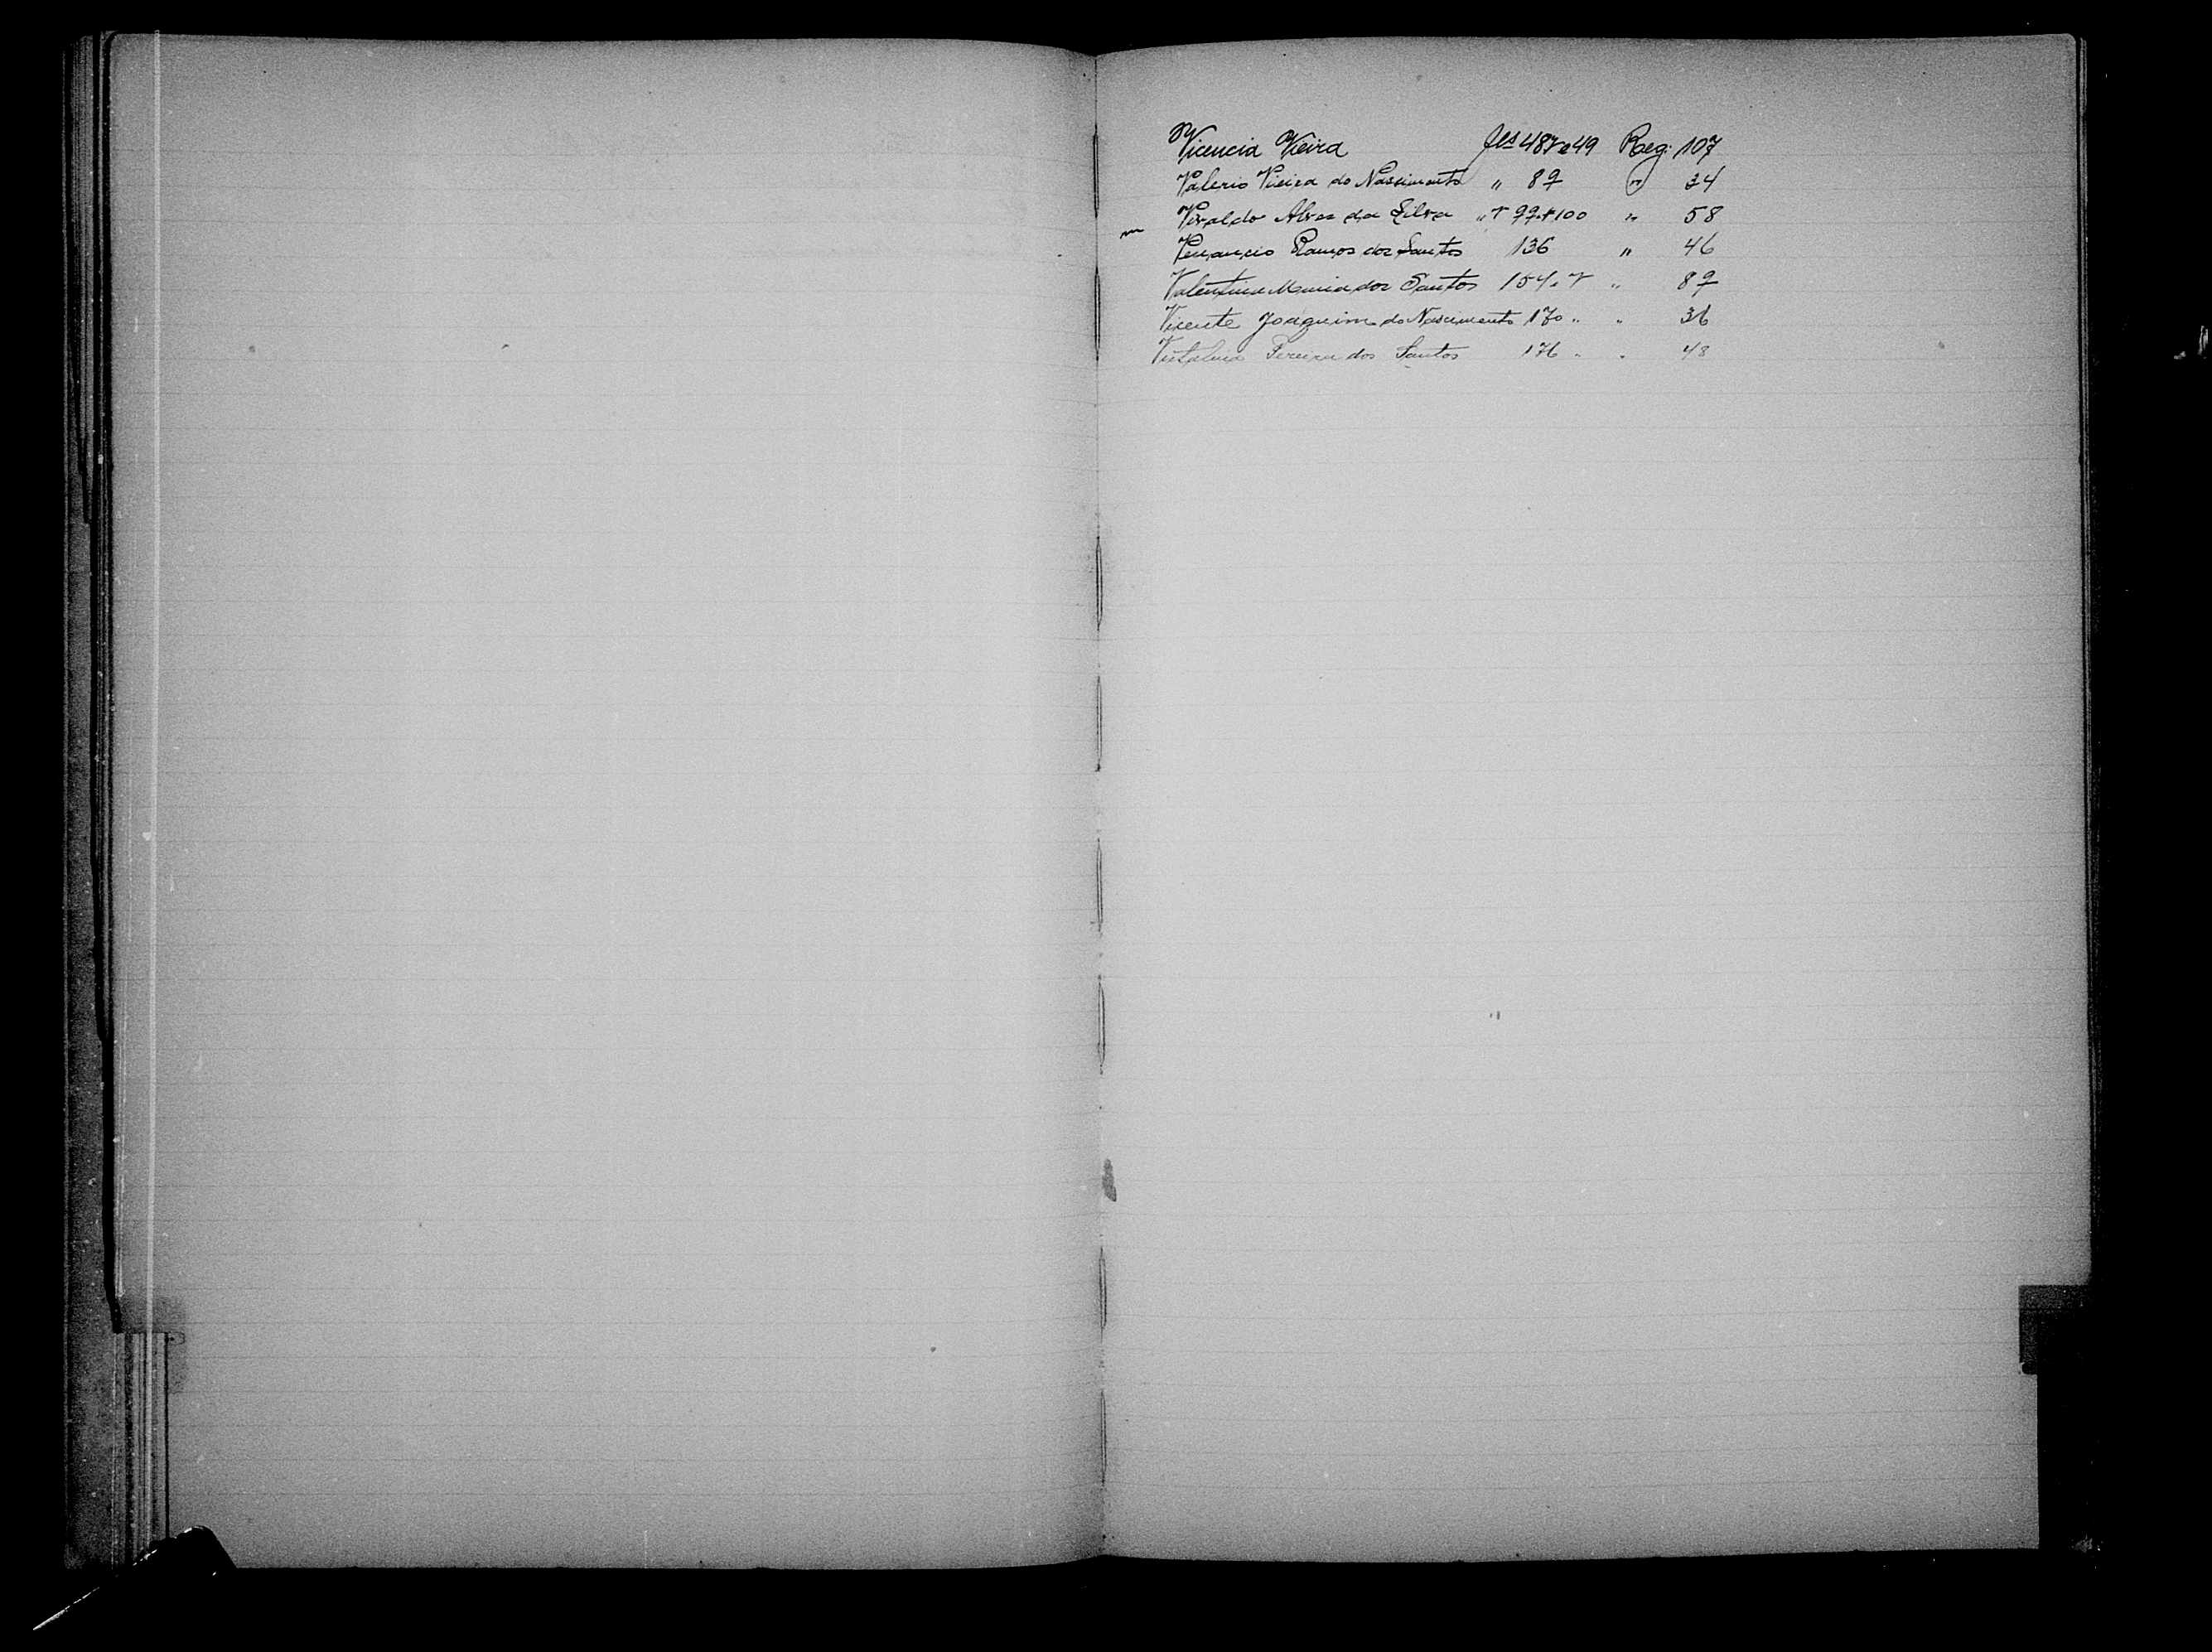 Vicencia Vieira fls 48v e 49 Reg. 107
Valerio Vieira do Nascimento " 89 " 34
Vivaldo Alves da Silva " v 99 v 100 " 58
Venancio Ramos dos Santos 136 " 46
Valentina Maria dos Santos 154 e v " 89
Vicente Joaquim do Nascimento 170 " " 36
Pereira dos Santos 176 " " 48